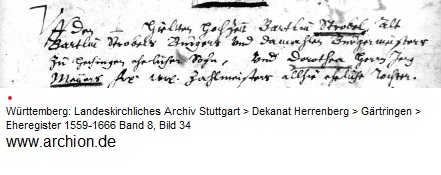 A den hielten Hochzeit Bartlin Strobel, alt
Bartlin Strobels Burgers und damahlen Burgermeisters
zu ehelicher Sohn, und Dorothea Herrn Jerg
Meyers Zahlmeisters allhie eheliche Tochter.
Württemberg: Landeskirchliches Archiv Stuttgart > Dekanat Herrenberg > Gärtringen >
Eheregister 1559-1666 Band 8, Bild 34
www.archion.de